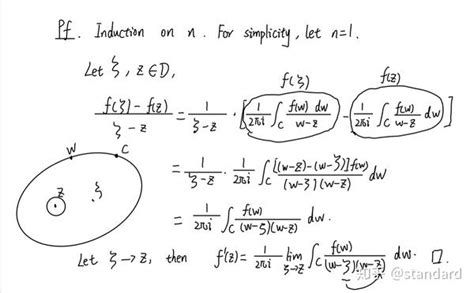 Pf. Induction on n. For simplicity, let n=1.
Let ξ, z∈D,
f(ξ) f(z)
f(ξ)-f(z) / ξ-z = 1/ξ-z · [ 1/2πi ∫_C f(w) dw / w-z - 1/2πi ∫_C f(w) / w-z dw ]
w C
= 1/ξ-z · 1/2πi ∫_C [(w-z)-(w-ξ)]f(w) / (w-ξ)(w-z) dw
z ξ
= 1/2πi ∫_C f(w) / (w-ξ)(w-z) dw.
Let ξ→z, then f'(z) = 1/2πi lim_{ξ→z} ∫_C f(w) / (w-ξ)(w-z) dw. □.
知乎 @standard